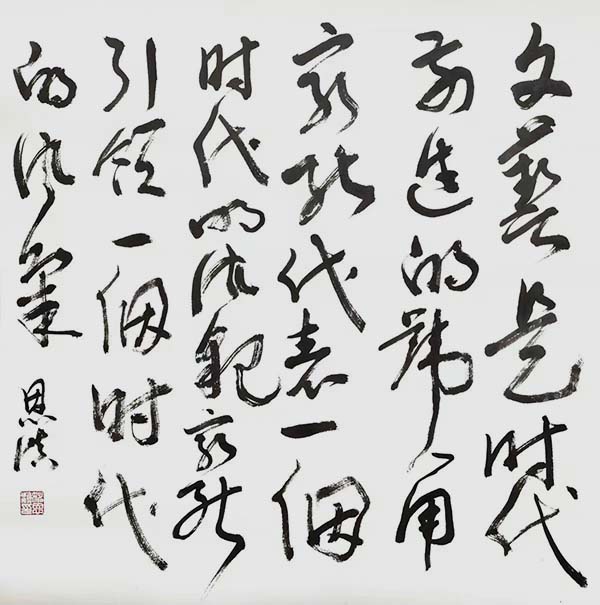 文藝是时代
前进的號角
最能代表一個
时代的风貌最能
引领一個时代
的风氣
恩